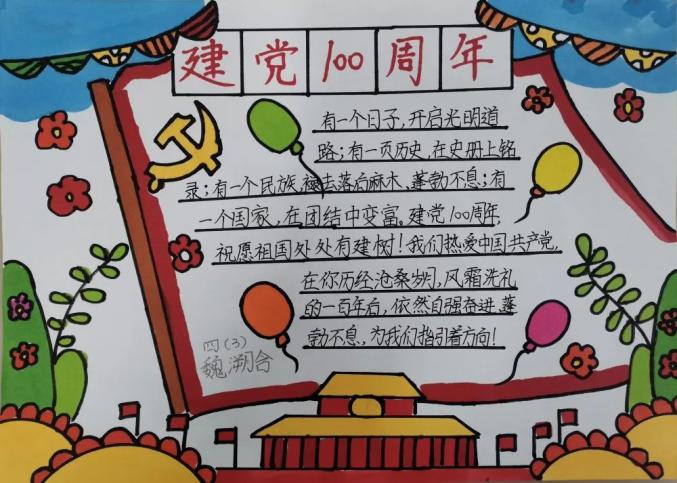 建党100周年
有一个日子,开启光明道
路;有一页历史,在史册上铭
录;有一个民族,褪去落后麻木,蓬勃不息;有
一个国家,在团结中变富。建党100周年,
祝愿祖国处处有建树!我们热爱中国共产党,
在你历经沧桑岁月,风霜洗礼
的一百年后,依然自强奋进,蓬
勃不息,为我们指引着方向!
四(3)
魏溯含